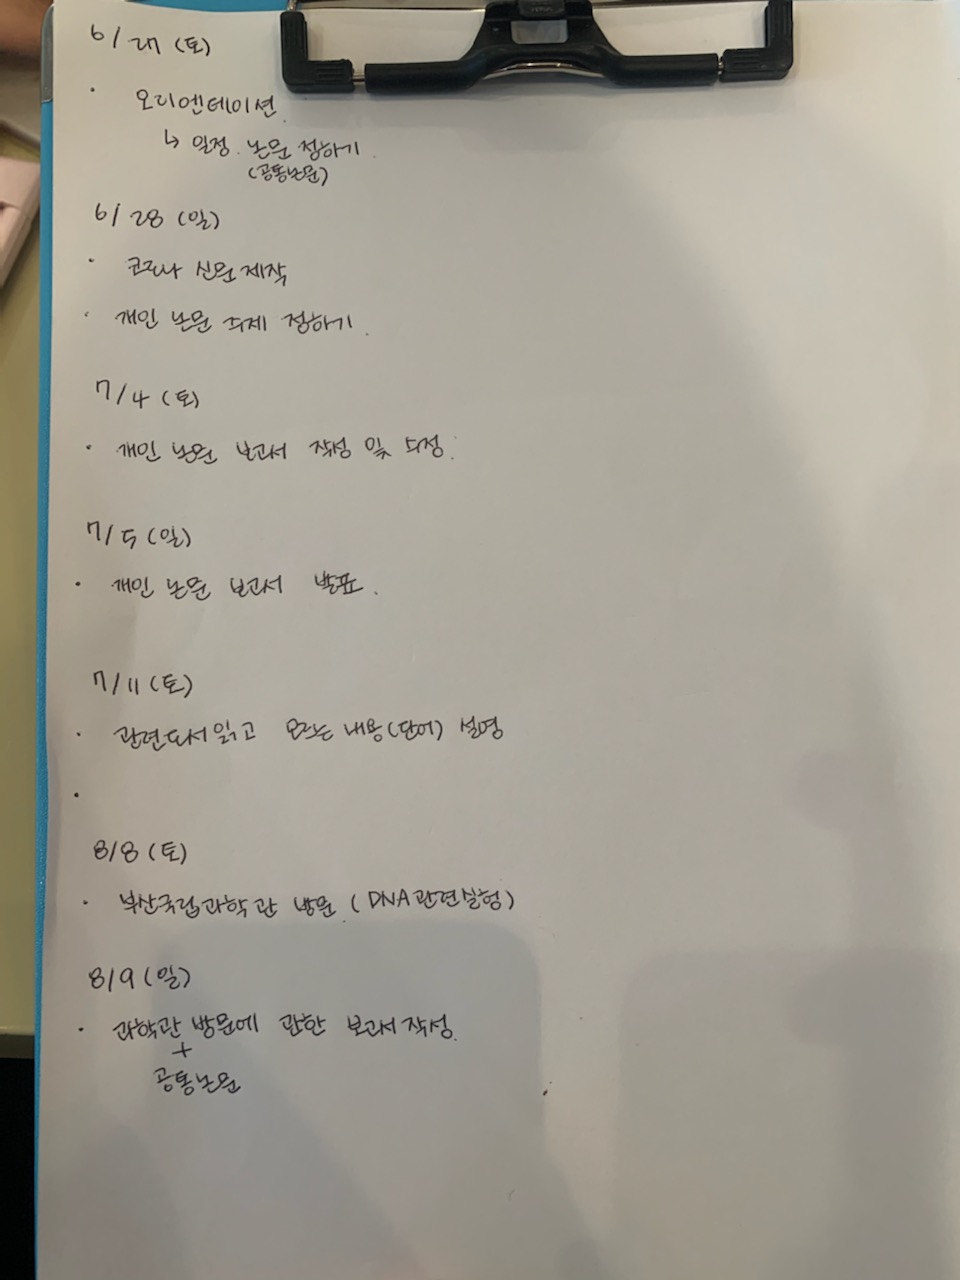 6/27 (토)
· 오리엔테이션.
↳ 일정. 논문 정하기.
(공통논문)
6/28 (일)
· 코로나 신문제작
· 개인 논문 주제 정하기.
7/4 (토)
· 개인 논문 보고서 작성 및 수정.
7/5 (일)
· 개인 논문 보고서 발표.
7/11 (토)
· 관련도서읽고 모르는 내용(단어) 설명
·
8/8 (토)
· 부산국립과학관 방문. (DNA관련실험)
8/9 (일)
· 과학관 방문에 관한 보고서작성.
+
공통논문